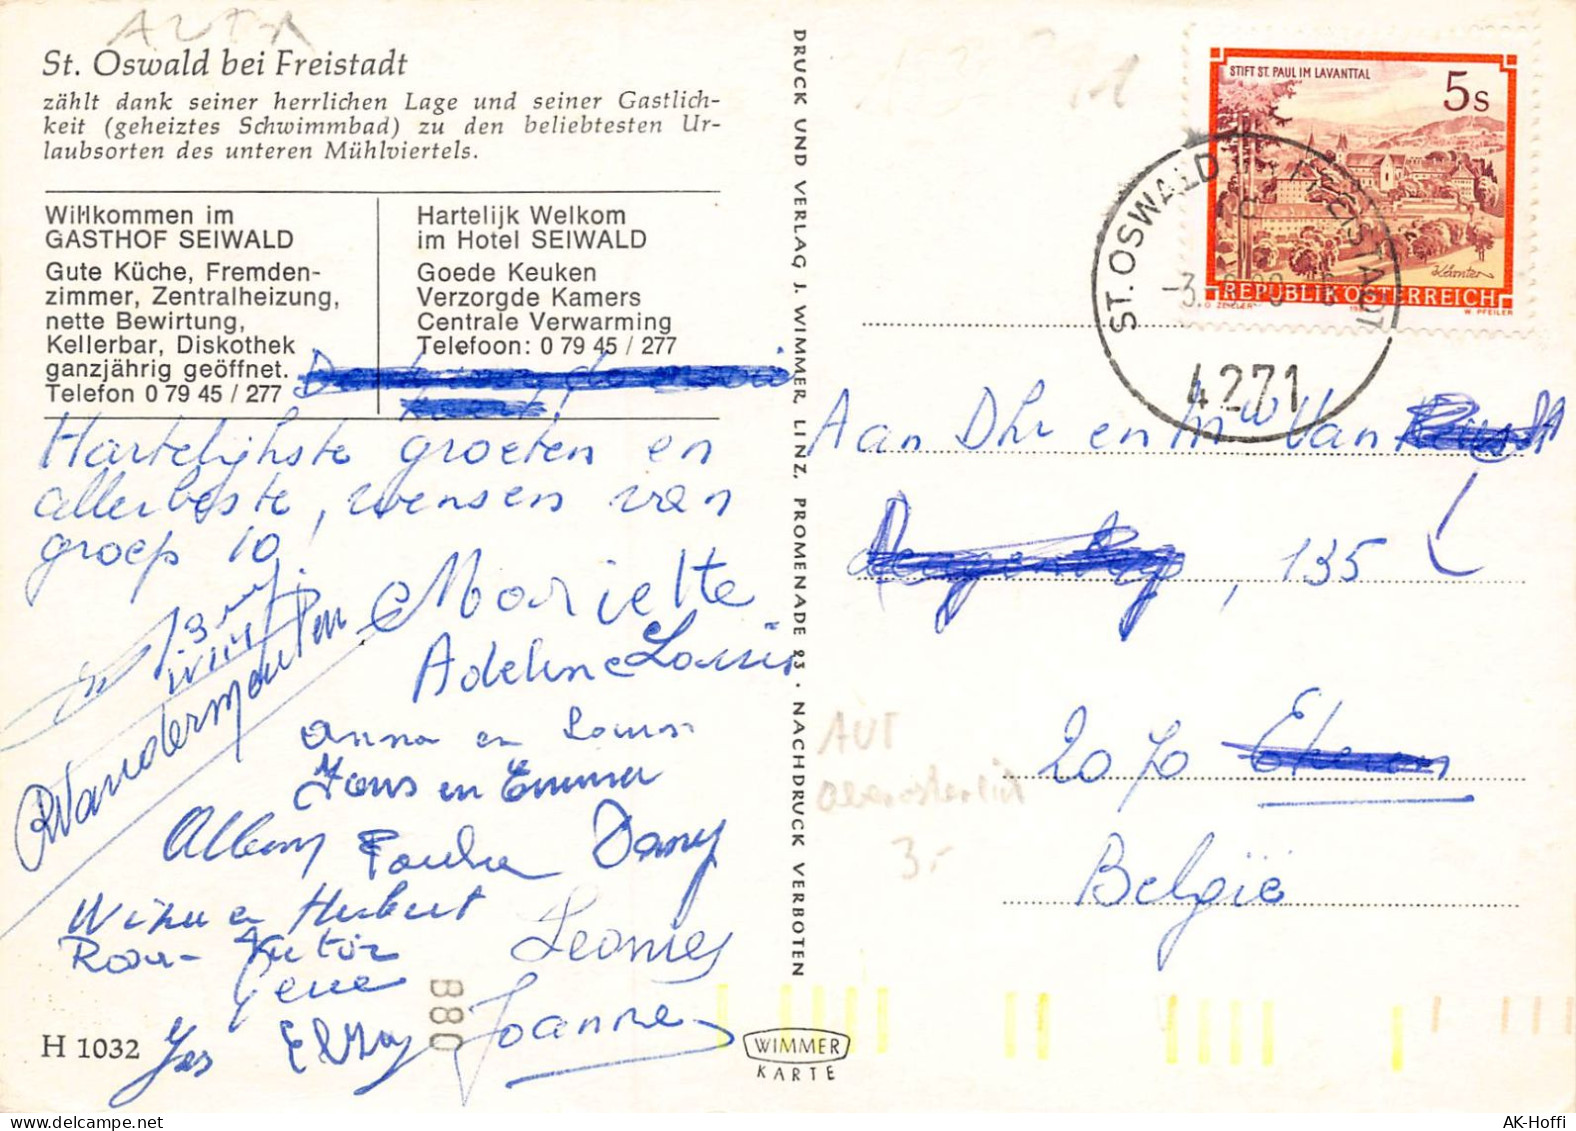 AUT
St. Oswald bei Freistadt
zählt dank seiner herrlichen Lage und seiner Gastlich-
keit (geheiztes Schwimmbad) zu den beliebtesten Ur-
laubsorten des unteren Mühlviertels.
Willkommen im
GASTHOF SEIWALD
Gute Küche, Fremden-
zimmer, Zentralheizung,
nette Bewirtung,
Kellerbar, Diskothek
ganzjährig geöffnet.
Telefon 0 79 45 / 277
Hartelijk Welkom
im Hotel SEIWALD
Goede Keuken
Verzorgde Kamers
Centrale Verwarming
Telefoon: 0 79 45 / 277
Hartelijkste groeten en
allerbeste, wensen van
groep 10.
Mariette
Adeline Louis
Anna en Louis
Hans en Emma
Pauline Dany
en Herbert
Leonie
Joanne
H 1032
B80
DRUCK UND VERLAG J. WIMMER, LINZ, PROMENADE 23 · NACHDRUCK VERBOTEN
WIMMER
KARTE
STIFT ST. PAUL IM LAVANTTAL
5s
Kärnten
REPUBLIK ÖSTERREICH
W. PFEILER
ST. OSWALD BEI FREISTADT
4271
Aan Dhr en Mw Van
, 135
2070
België
AUT
3.-
AK-Hoffi